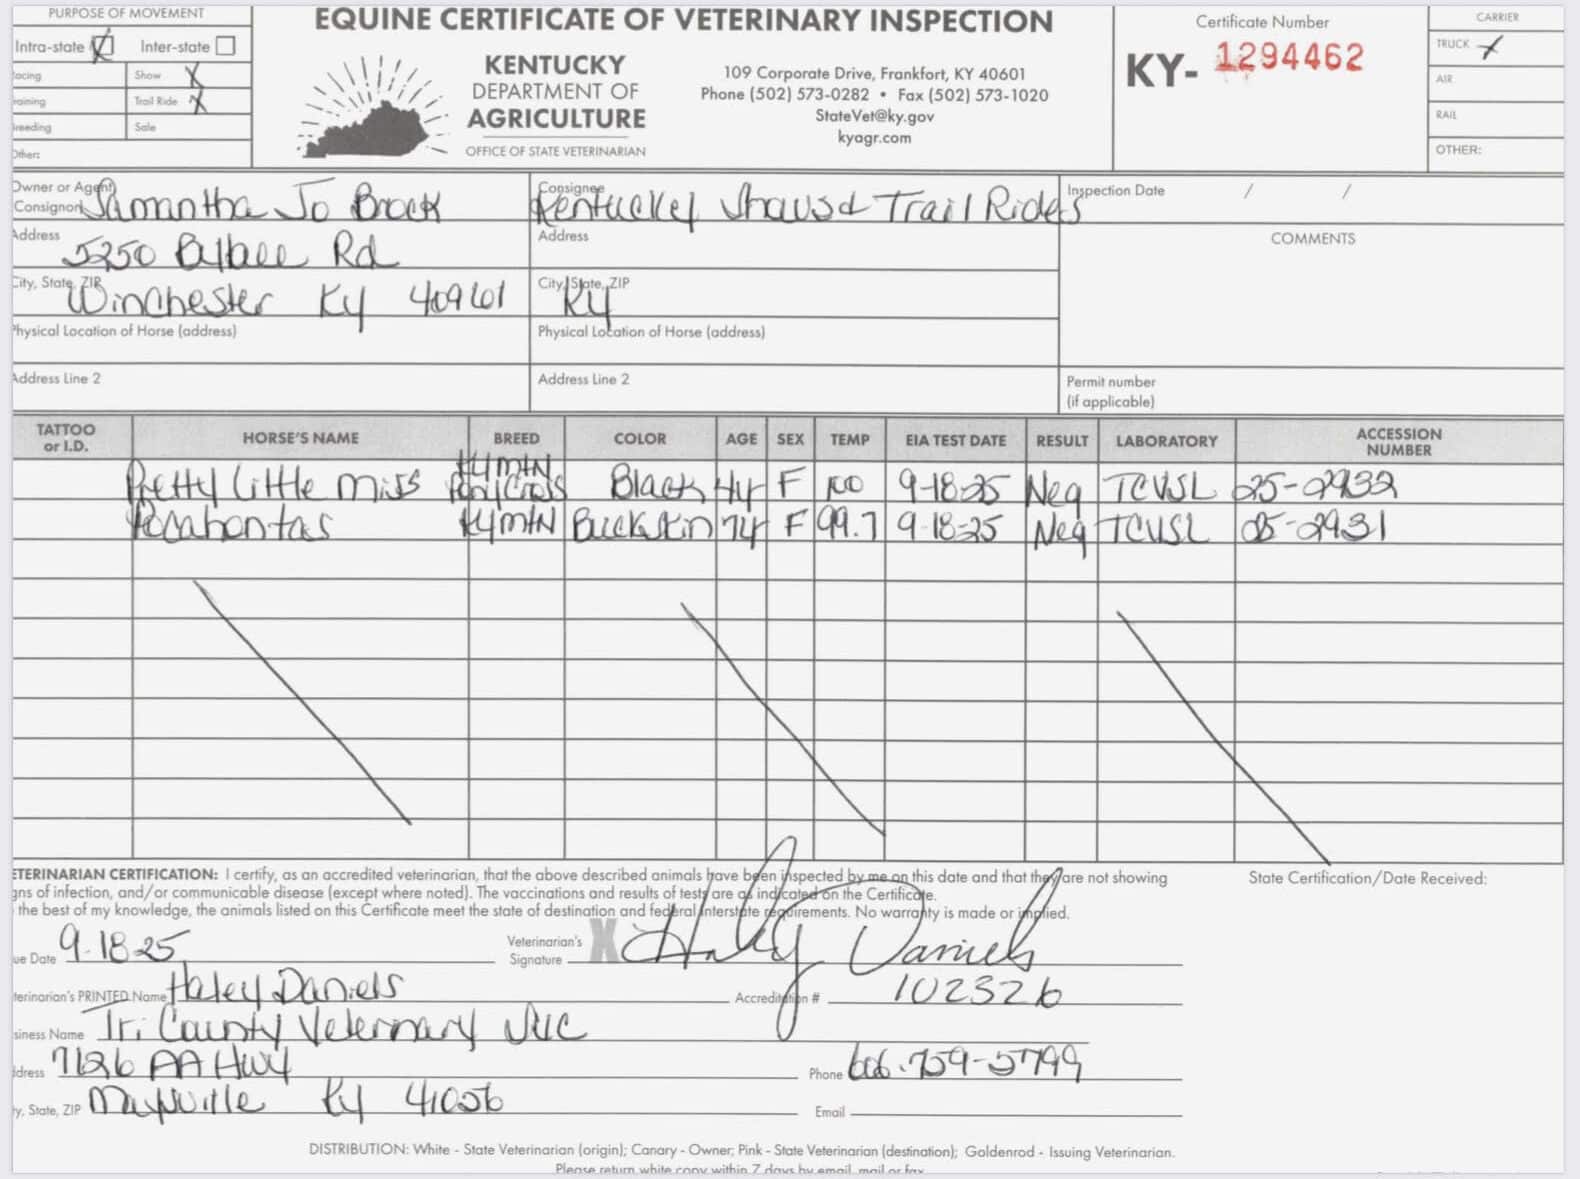 PURPOSE OF MOVEMENT
Intra-state Inter-state
acing Show X
raining Trail Ride X
reeding Sale
Other:
EQUINE CERTIFICATE OF VETERINARY INSPECTION
KENTUCKY
DEPARTMENT OF
AGRICULTURE
OFFICE OF STATE VETERINARIAN
109 Corporate Drive, Frankfort, KY 40601
Phone (502) 573-0282 • Fax (502) 573-1020
StateVet@ky.gov
kyagr.com
Certificate Number
KY- 1294462
CARRIER
TRUCK X
AIR
RAIL
OTHER:
Owner or Agent
Consignor Samantha Jo Brock
Address
5250 Bybee Rd
City, State, ZIP
Winchester Ky
Physical Location of Horse (address)
Address Line 2
Consignee
Kentucky Shows & Trail Rides
Address
City, State, ZIP
Ky
Physical Location of Horse (address)
Address Line 2
Inspection Date / /
COMMENTS
Permit number
(if applicable)
TATTOO or I.D. HORSE'S NAME BREED COLOR AGE SEX TEMP EIA TEST DATE RESULT LABORATORY ACCESSION NUMBER
Pretty Little Miss Ky MTN Pony Cross Black 4y F 100 9-18-25 Neg TCVSL 25-2932
Pocahontas Ky MTN Buckskin 7y F 99.7 9-18-25 Neg TCVSL 25-2931
ETERINARIAN CERTIFICATION: I certify, as an accredited veterinarian, that the above described animals have been inspected by me on this date and that they are not showing
gns of infection, and/or communicable disease (except where noted). The vaccinations and results of tests are as indicated on the Certificate.
the best of my knowledge, the animals listed on this Certificate meet the state of destination and federal interstate requirements. No warranty is made or implied.
State Certification/Date Received:
ue Date 9-18-25
Veterinarian's
Signature X Haley Daniels
terinarian's PRINTED Name Haley Daniels
Accreditation # 102326
siness Name Tri County Veternary SVC
dress 7126 AA HWY
Phone 606-759-5799
ty, State, ZIP Maysville Ky 41056
Email
DISTRIBUTION: White - State Veterinarian (origin); Canary - Owner; Pink - State Veterinarian (destination); Goldenrod - Issuing Veterinarian.
Please return white copy within 7 days by email, mail or fax